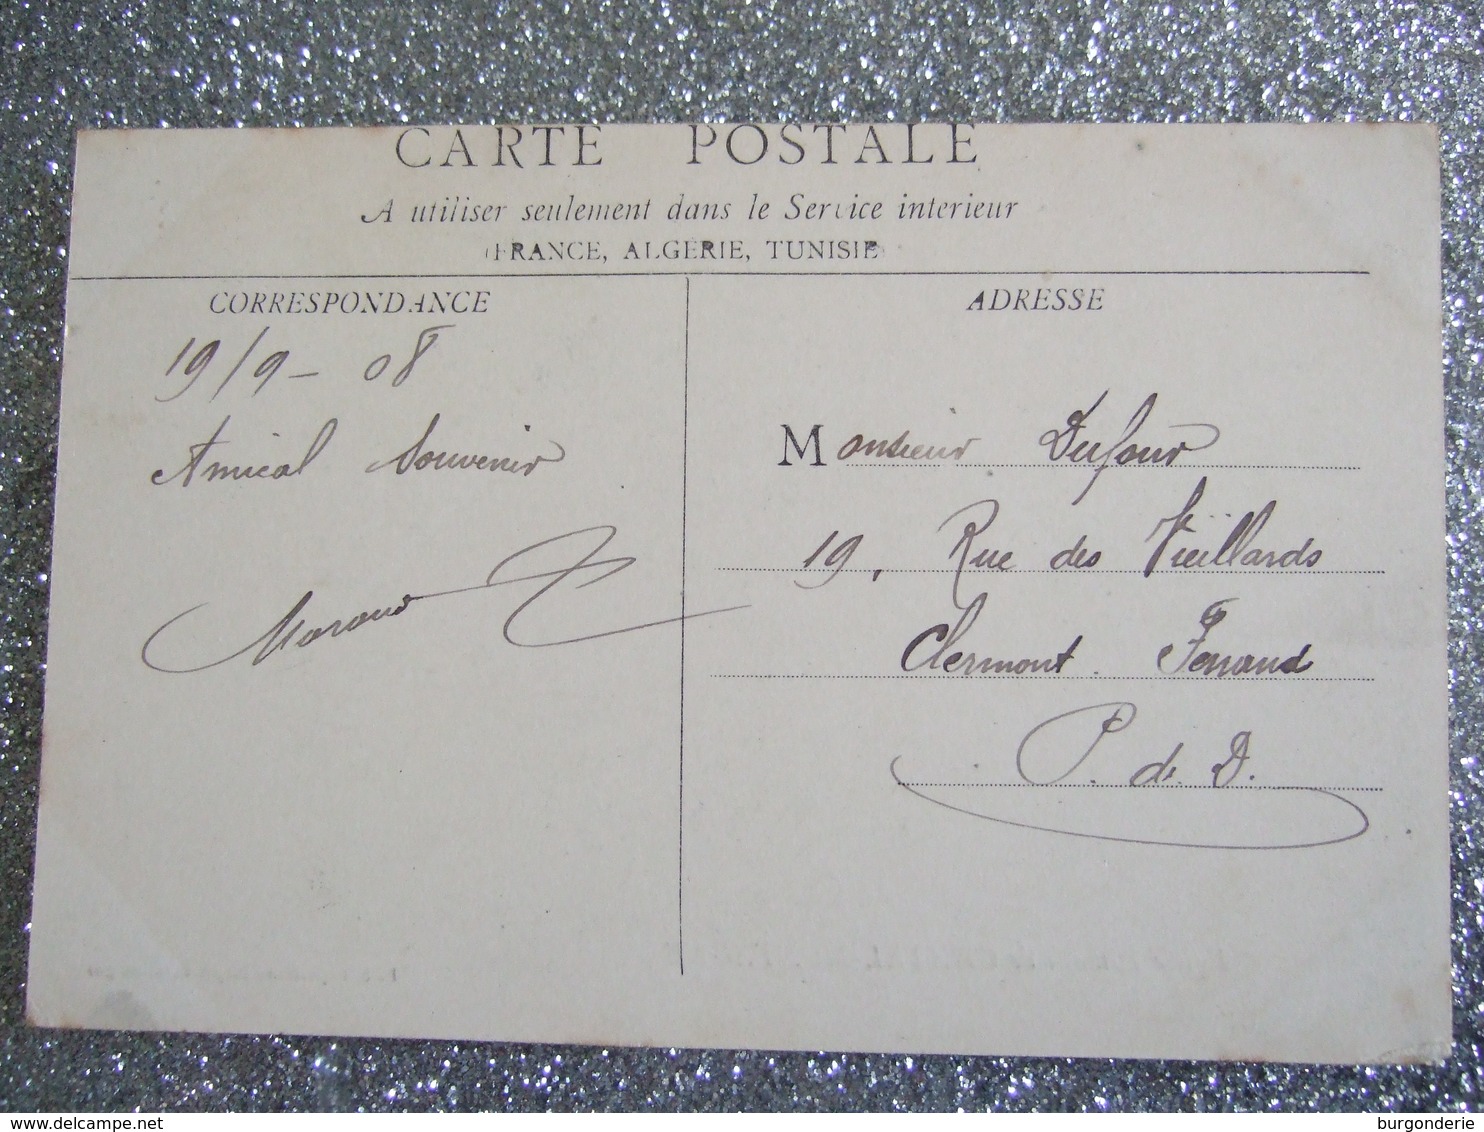 CARTE POSTALE
A utiliser seulement dans le Service interieur
(FRANCE, ALGÉRIE, TUNISIE)
CORRESPONDANCE
19/9 - 08
Amical Souvenir
ADRESSE
Monsieur Dufour
19, Rue des Vieillards
Clermont Ferrand
P. de D.
delcampe.net
burgonderie